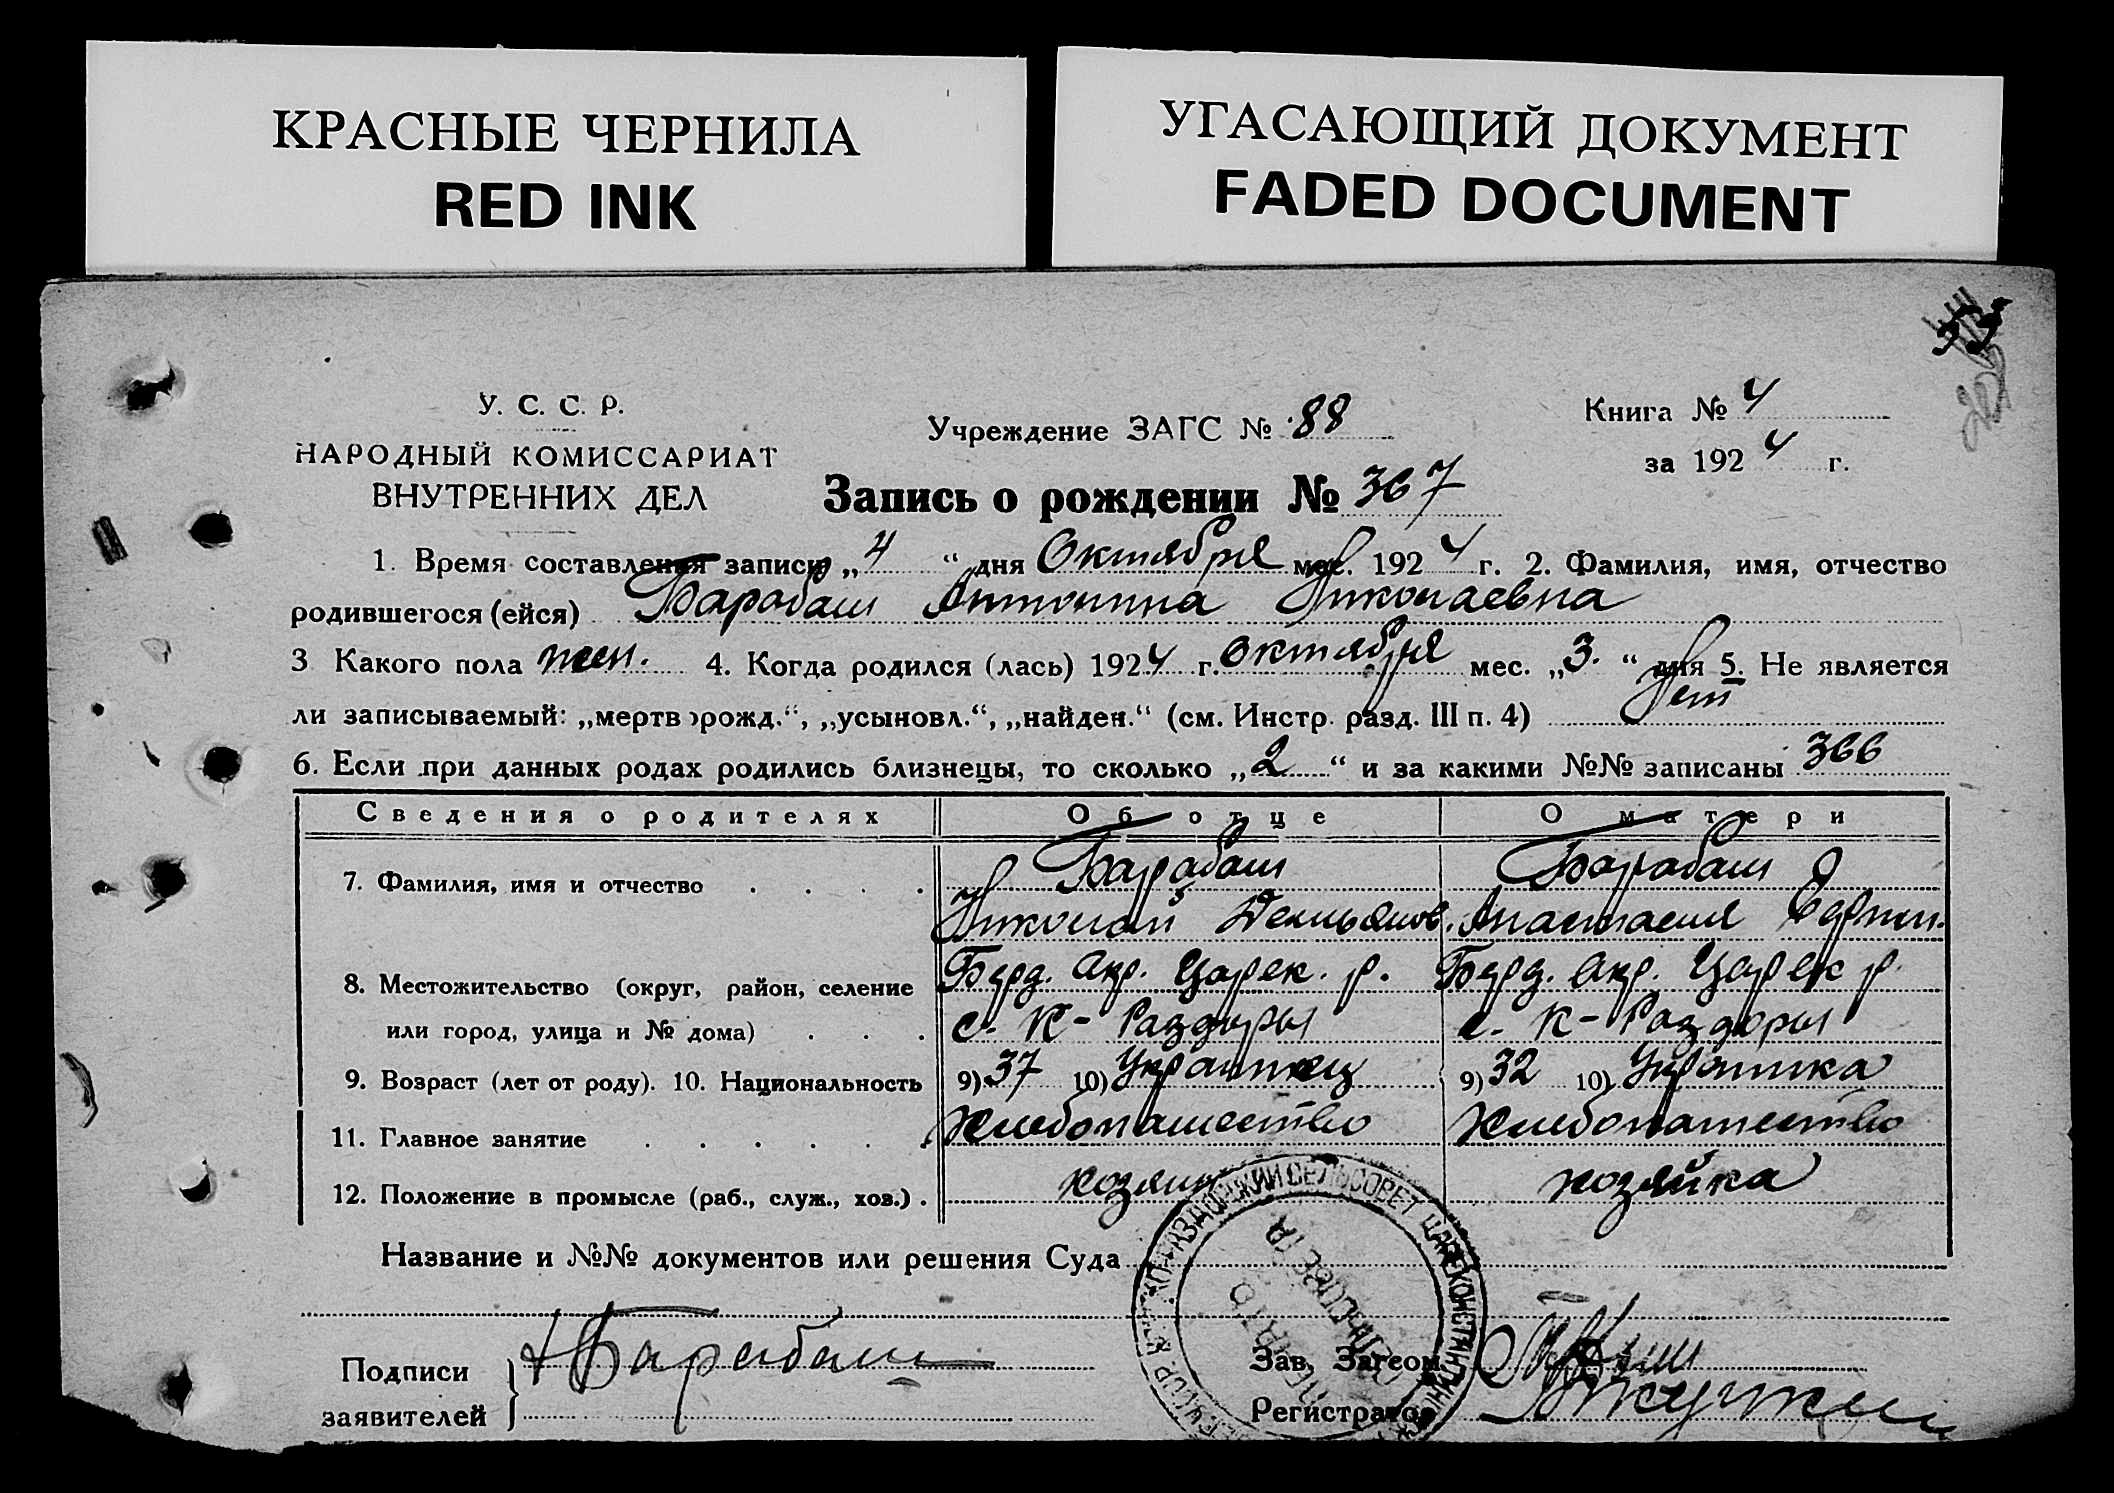 КРАСНЫЕ ЧЕРНИЛА
RED INK
УГАСАЮЩИЙ ДОКУМЕНТ
FADED DOCUMENT
У. С. С. Р.
НАРОДНЫЙ КОМИССАРИАТ
ВНУТРЕННИХ ДЕЛ
Учреждение ЗАГС № 88
Книга № 4
за 1924 г.
Запись о рождении № 367
1. Время составления записи „4“ дня Октября мес. 1924 г. 2. Фамилия, имя, отчество
родившегося (ейся) Барабаш Антонина Николаевна
3 Какого пола жен. 4. Когда родился (лась) 1924 г. октября мес. „3.“ дня 5. Не является
ли записываемый: „мертворожд.“, „усыновл.“, „найден.“ (см. Инстр. разд. III п. 4) Нет
6. Если при данных родах родились близнецы, то сколько „2“ и за какими №№ записаны 366
Сведения о родителях Об отце О матери
7. Фамилия, имя и отчество . . . . Барабаш Барабаш
Николай Демьянов. Анастасия
8. Местожительство (округ, район, селение Берд. окр. Царек. р. Берд. окр. Царек р.
или город, улица и № дома) . . . с. К-Раздоры с. К-Раздоры
9. Возраст (лет от роду). 10. Национальность 9) 37 10) Украинец 9) 32 10) Украинка
11. Главное занятие . . . . . . Хлебопашество Хлебопашество
12. Положение в промысле (раб., служ., хоз.) . хозяин хозяйка
Название и №№ документов или решения Суда
РАЗДОРСКИЙ СЕЛЬСОВЕТ ЦАРЕКОНСТАНТИНОВСК
Подписи
заявителей
Барабаш
Зав. Загсом
Регистратор